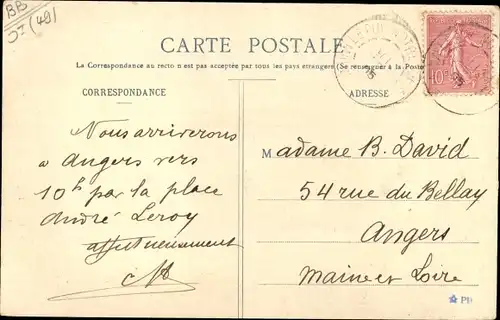 BB
CARTE POSTALE
La Correspondance au recto n'est pas acceptée par tous les pays étrangers (Se renseigner à la Poste
CORRESPONDANCE
ADRESSE
10
Nous arriverons
a Angers vers
10h par la place
André Leroy
affectueusement
Madame B. David
54 rue du Bellay
Angers
Maine et Loire